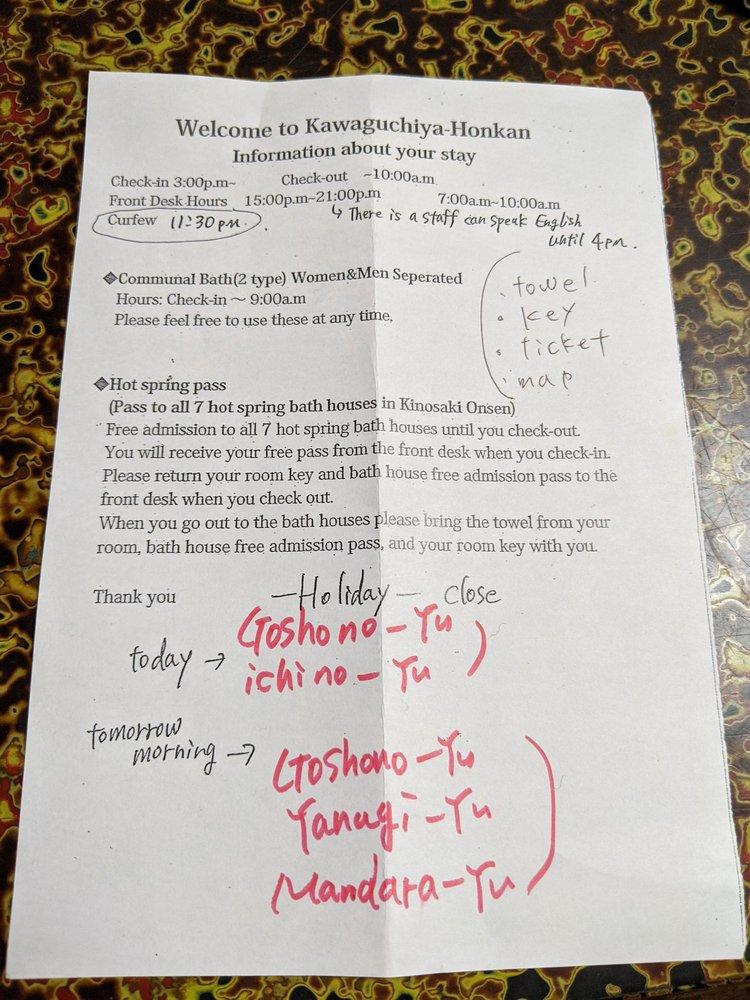 Welcome to Kawaguchiya-Honkan
Information about your stay
Check-in 3:00p.m~ Check-out ~10:00a.m
Front Desk Hours 15:00p.m~21:00p.m 7:00a.m~10:00a.m
Curfew 11:30pm. ↳ There is a staff can speak English
until 4pm.
◆Communal Bath(2 type) Women&Men Seperated
Hours: Check-in ~ 9:00a.m
Please feel free to use these at any time,
· towel
· key
· ticket
· map
◆Hot spring pass
(Pass to all 7 hot spring bath houses in Kinosaki Onsen)
Free admission to all 7 hot spring bath houses until you check-out.
You will receive your free pass from the front desk when you check-in.
Please return your room key and bath house free admission pass to the
front desk when you check out.
When you go out to the bath houses please bring the towel from your
room, bath house free admission pass, and your room key with you.
Thank you
—Holiday— close
today → Goshono-Yu
ichino-Yu
tomorrow
morning → Goshono-Yu
Yanagi-Yu
Mandara-Yu